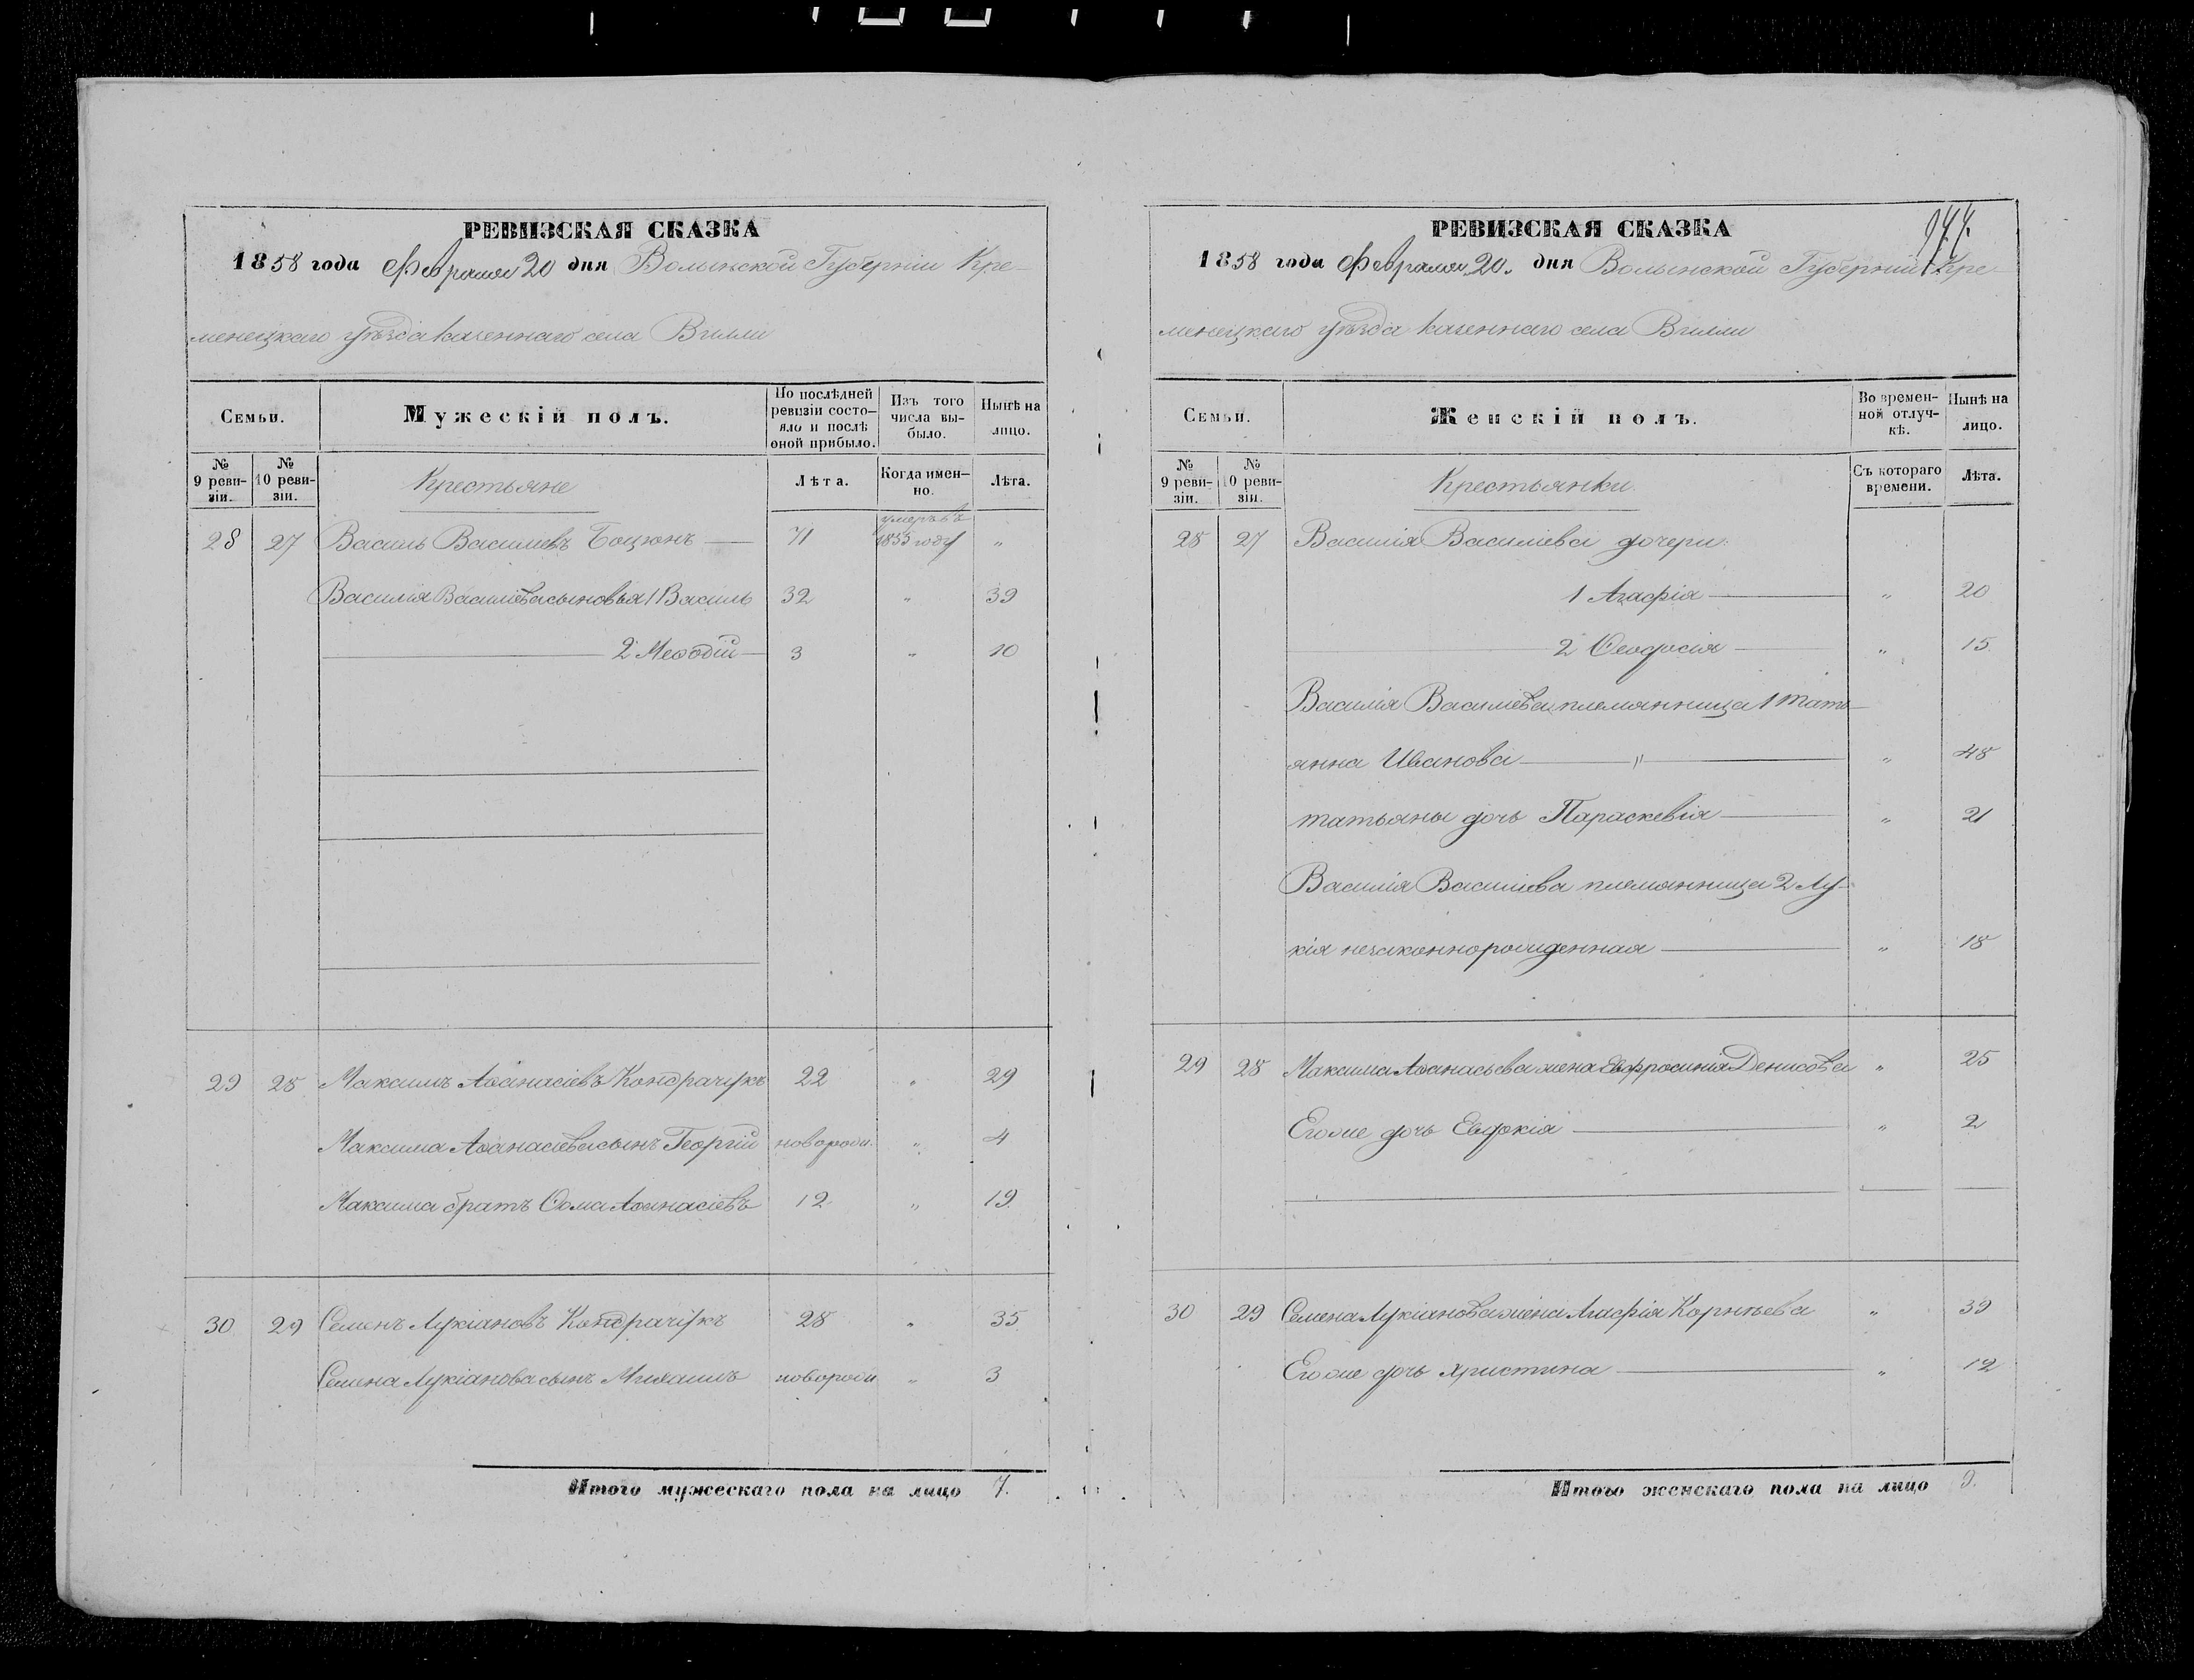 РЕВИЗСКАЯ СКАЗКА
1858 года Февраля 20 дня Волынской Губерніи Кре-
менецкаго уѣзда казеннаго села Вилли
Семьи.
Мужескій полъ.
По послѣдней ревизіи состо-
яло и послѣ оной прибыло.
Изъ того числа вы-
было.
Нынѣ на лицо.
№ 9 реви-
зіи.
№ 10 реви-
зіи.
Крестьяне
Лѣта.
Когда имен-
но.
Лѣта.
28 27 Василь Василіевъ 71 умеръ въ 1855 году "
Василія Василіева сыновья 1 Василь 32 " 39
2 Меѳодій 3 " 10
29 28 Максимъ Аѳанасіевъ Кондрачукъ 22 " 29
Максима Аѳанасіева сынъ Георгій новорожд. " 4
Максима братъ Ѳома Аѳанасіевъ 12 " 19
30 29 Семенъ Лукіановъ Кондрачукъ 28 " 35
Семена Лукіанова сынъ Михаилъ новорожд " 3
Итого мужескаго пола на лицо 7.
РЕВИЗСКАЯ СКАЗКА
1858 года Февраля 20. дня Волынской Губерніи Кре-
менецкаго уѣзда казеннаго села Вилли
Семьи.
Женскій полъ.
Во времен-
ной отлуч-
кѣ.
Нынѣ на лицо.
№ 9 реви-
зіи.
№ 10 реви-
зіи.
Крестьянки
Съ котораго времени.
Лѣта.
28 27 Василія Василіева дочери:
1 Агафія " 20
2 Ѳеодосія " 15
Василія Василіева племянница 1 Тать-
янна Иванова " " 48
татьяны дочь Параскевія " 21
Василія Василіева племянница 2 Лу-
кія незаконнорожденная " 18
29 28 Максима Аѳанасьева жена Евфросинія Денисова " 25
Егоже дочь Евдокія " 2
30 29 Семена Лукіанова жена Агафія Корнѣева " 39
Егоже дочь Христина " 12
Итого женскаго пола на лицо 9.